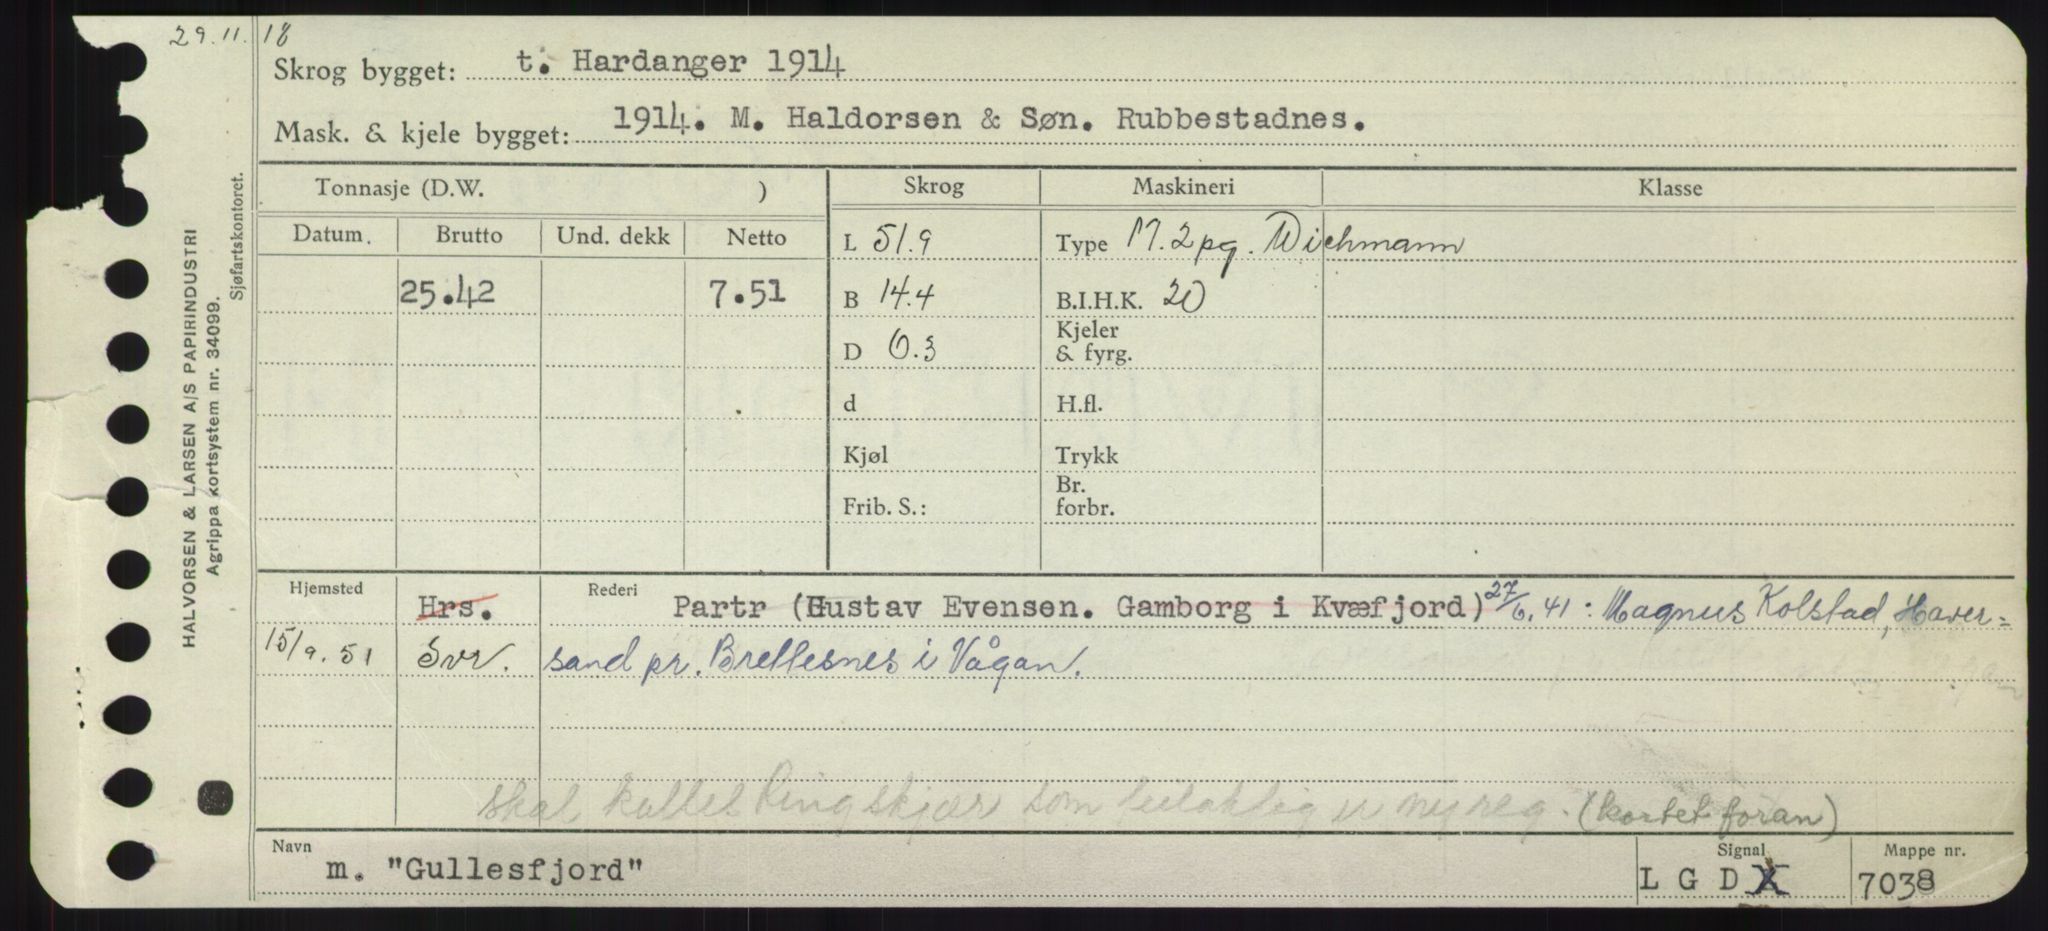 29.11.18
Skrog bygget: t. Hardanger 1914
Mask. & kjele bygget: 1914. M. Haldorsen & Søn. Rubbestadnes.
HALVORSEN & LARSEN A/S PAPIRINDUSTRI
Agrippa kortsystem nr. 34099.
Sjøfartskontoret.
Tonnasje (D.W. ) Skrog Maskineri Klasse
Datum. Brutto Und. dekk Netto L 51.9 Type M. 2 pg. Wichmann
25.42 7.51 B 14.4 B.I.H.K. 20
D 6.3 Kjeler & fyrg.
d H.fl.
Kjøl Trykk
Frib. S.: Br. forbr.
Hjemsted Hrs. Rederi Partr (Gustav Evensen. Gamborg i Kvæfjord) 27/6.41: Magnus Kolstad, Haver=
15/9.51 Svr. sand pr. Brettesnes i Vågan.
skal kalles Ringskjær som er ny reg. (kortet foran)
Navn m. "Gullesfjord" Signal L G D X Mappe nr. 7038